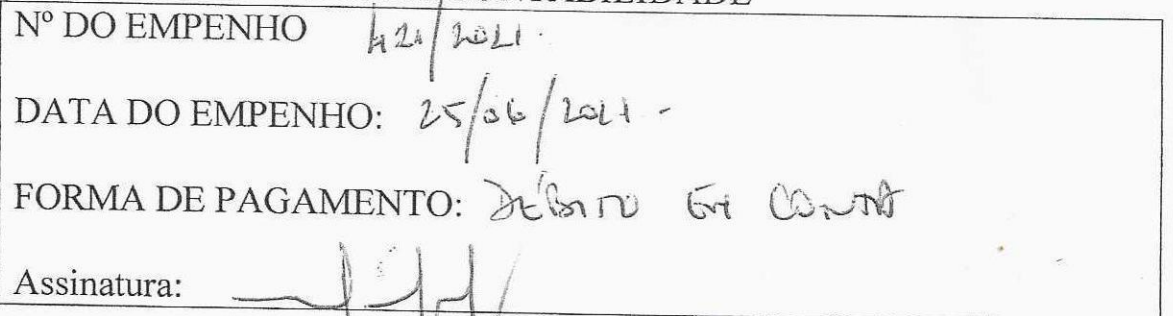 CONTABILIDADE
Nº DO EMPENHO 421/2021.
DATA DO EMPENHO: 25/06/2021 -
FORMA DE PAGAMENTO: DÉBITO EM CONTA
Assinatura: